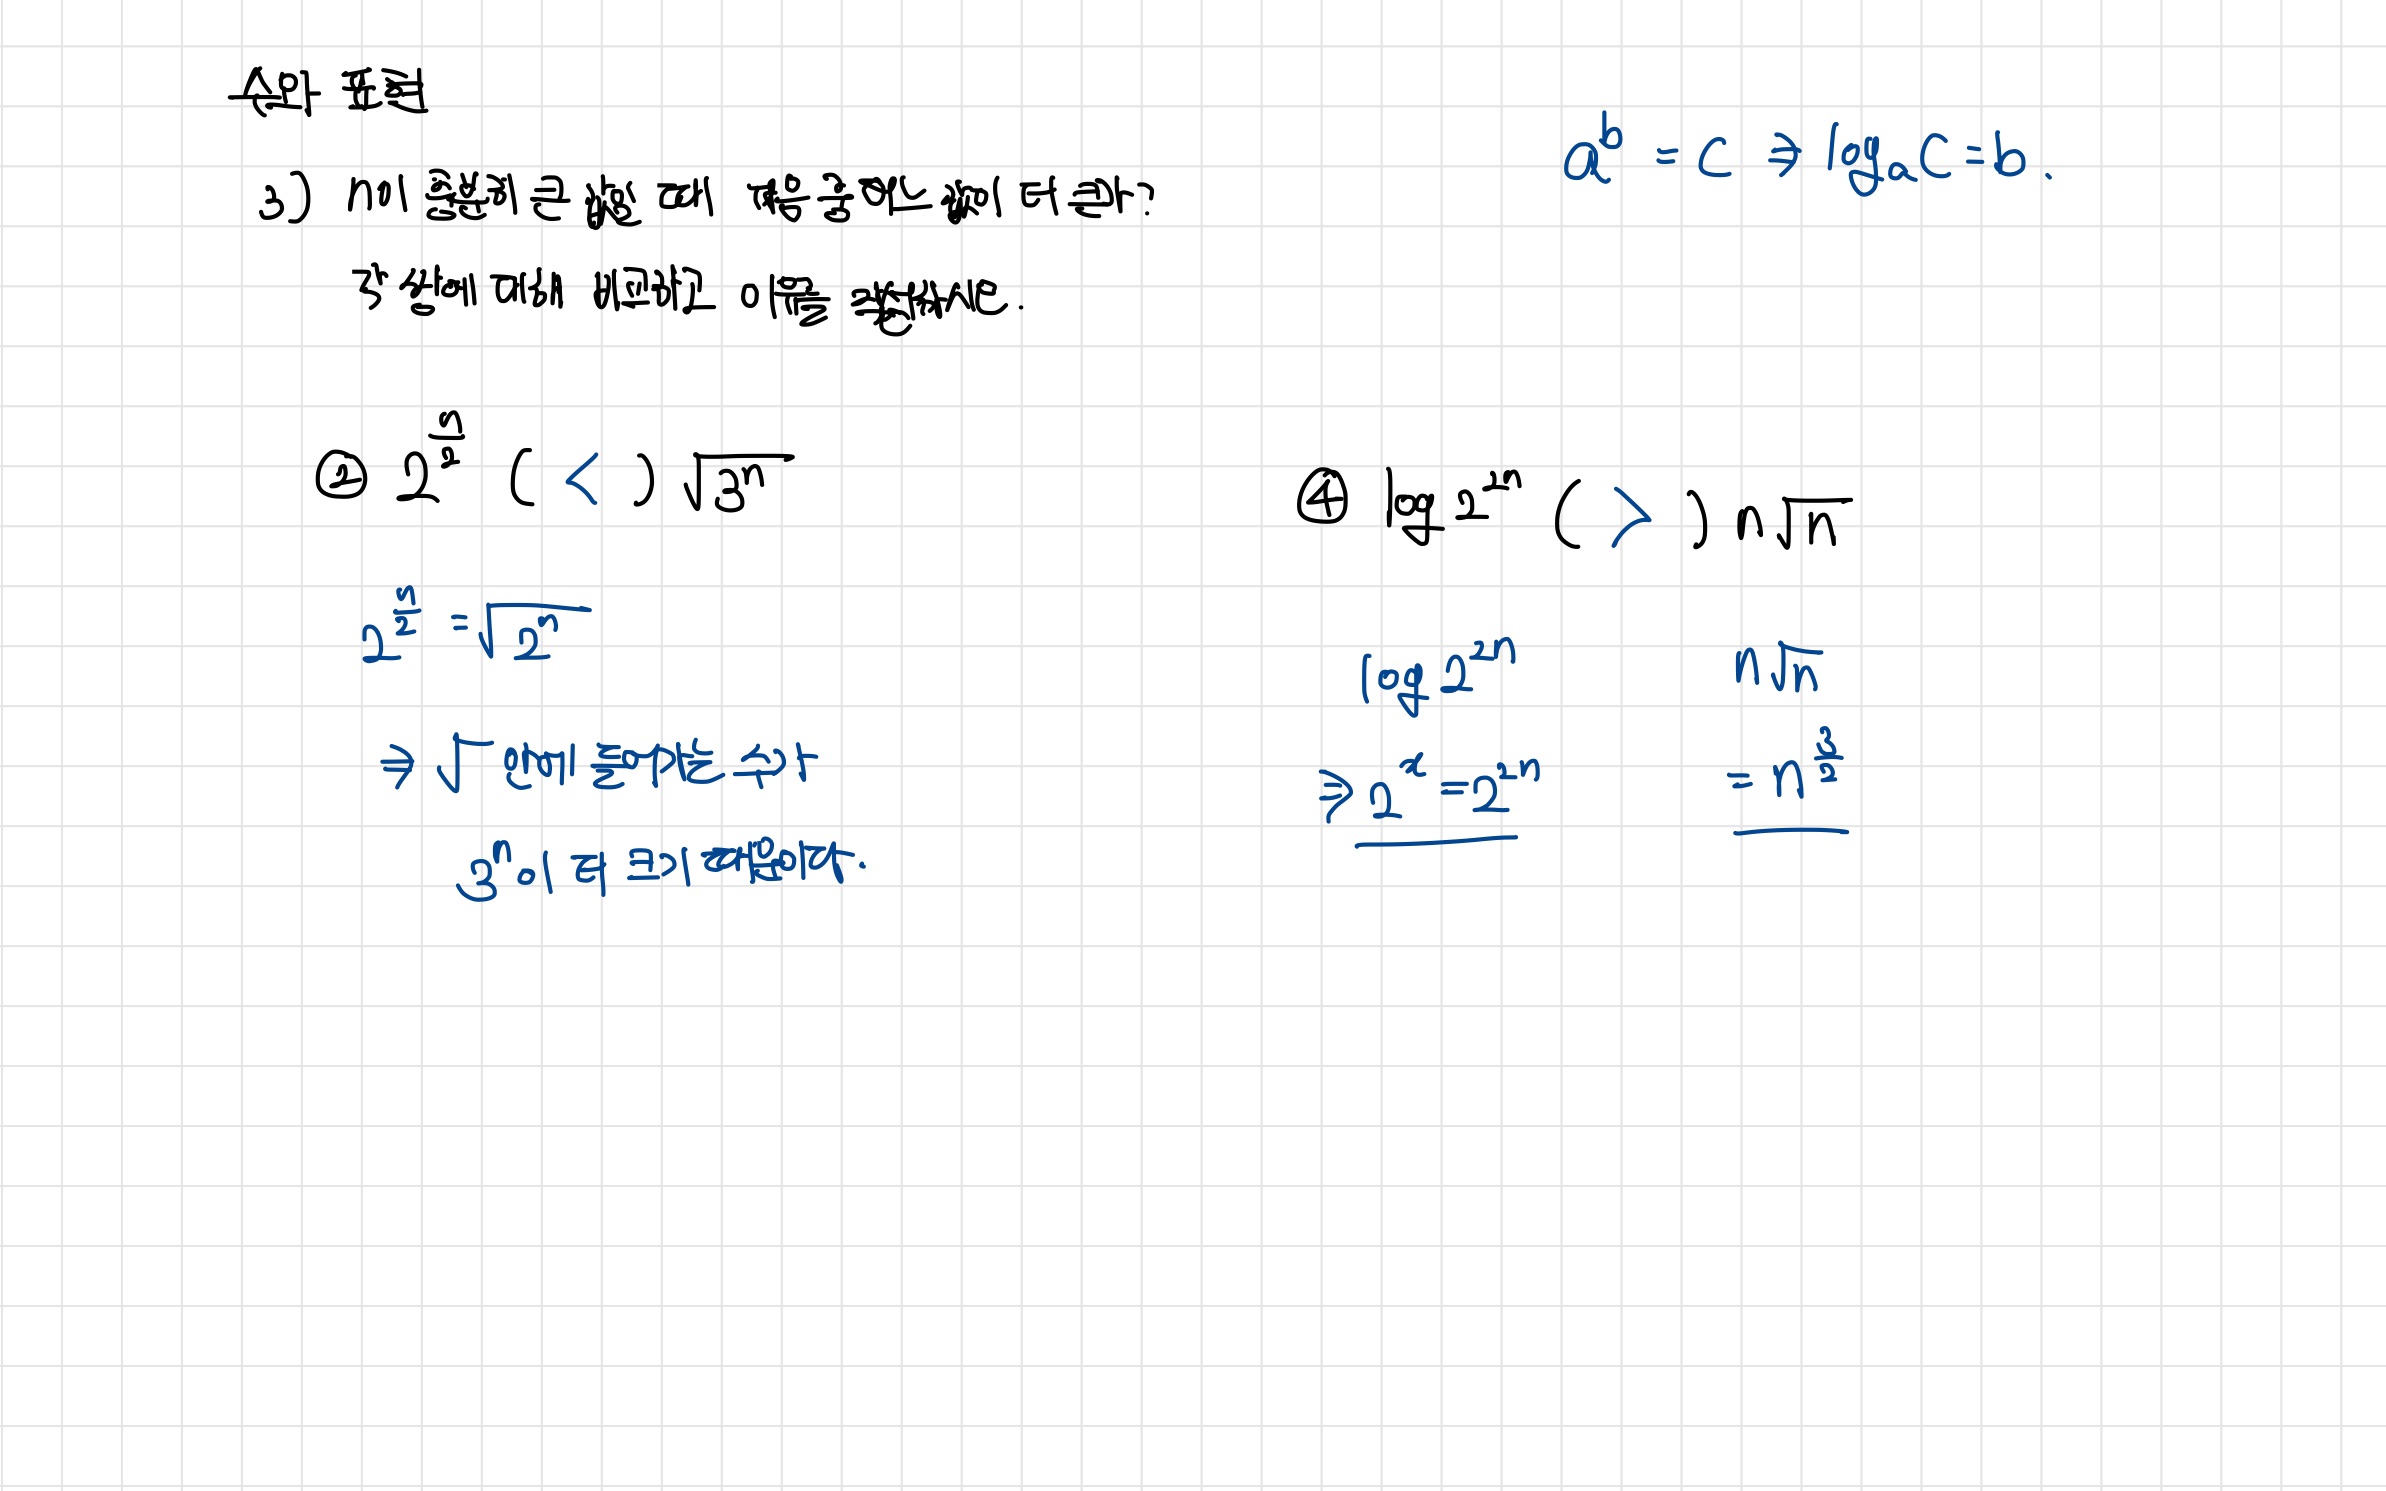 수와 표현
3) n이 충분히 큰 값일 때 다음 중 어느 값이 더 큰가?
각 쌍에 대해 비교하고 이유를 쓰시오.
a^b = c ⇒ log_a c = b.
② 2^(n/2) ( < ) √(3^n)
2^(n/2) = √(2^n)
⇒ √ 안에 들어가는 수가
3^n이 더 크기 때문이다.
④ log 2^(2n) ( > ) n√n
log 2^(2n)
⇒ 2^x = 2^(2n)
n√n
= n^(3/2)